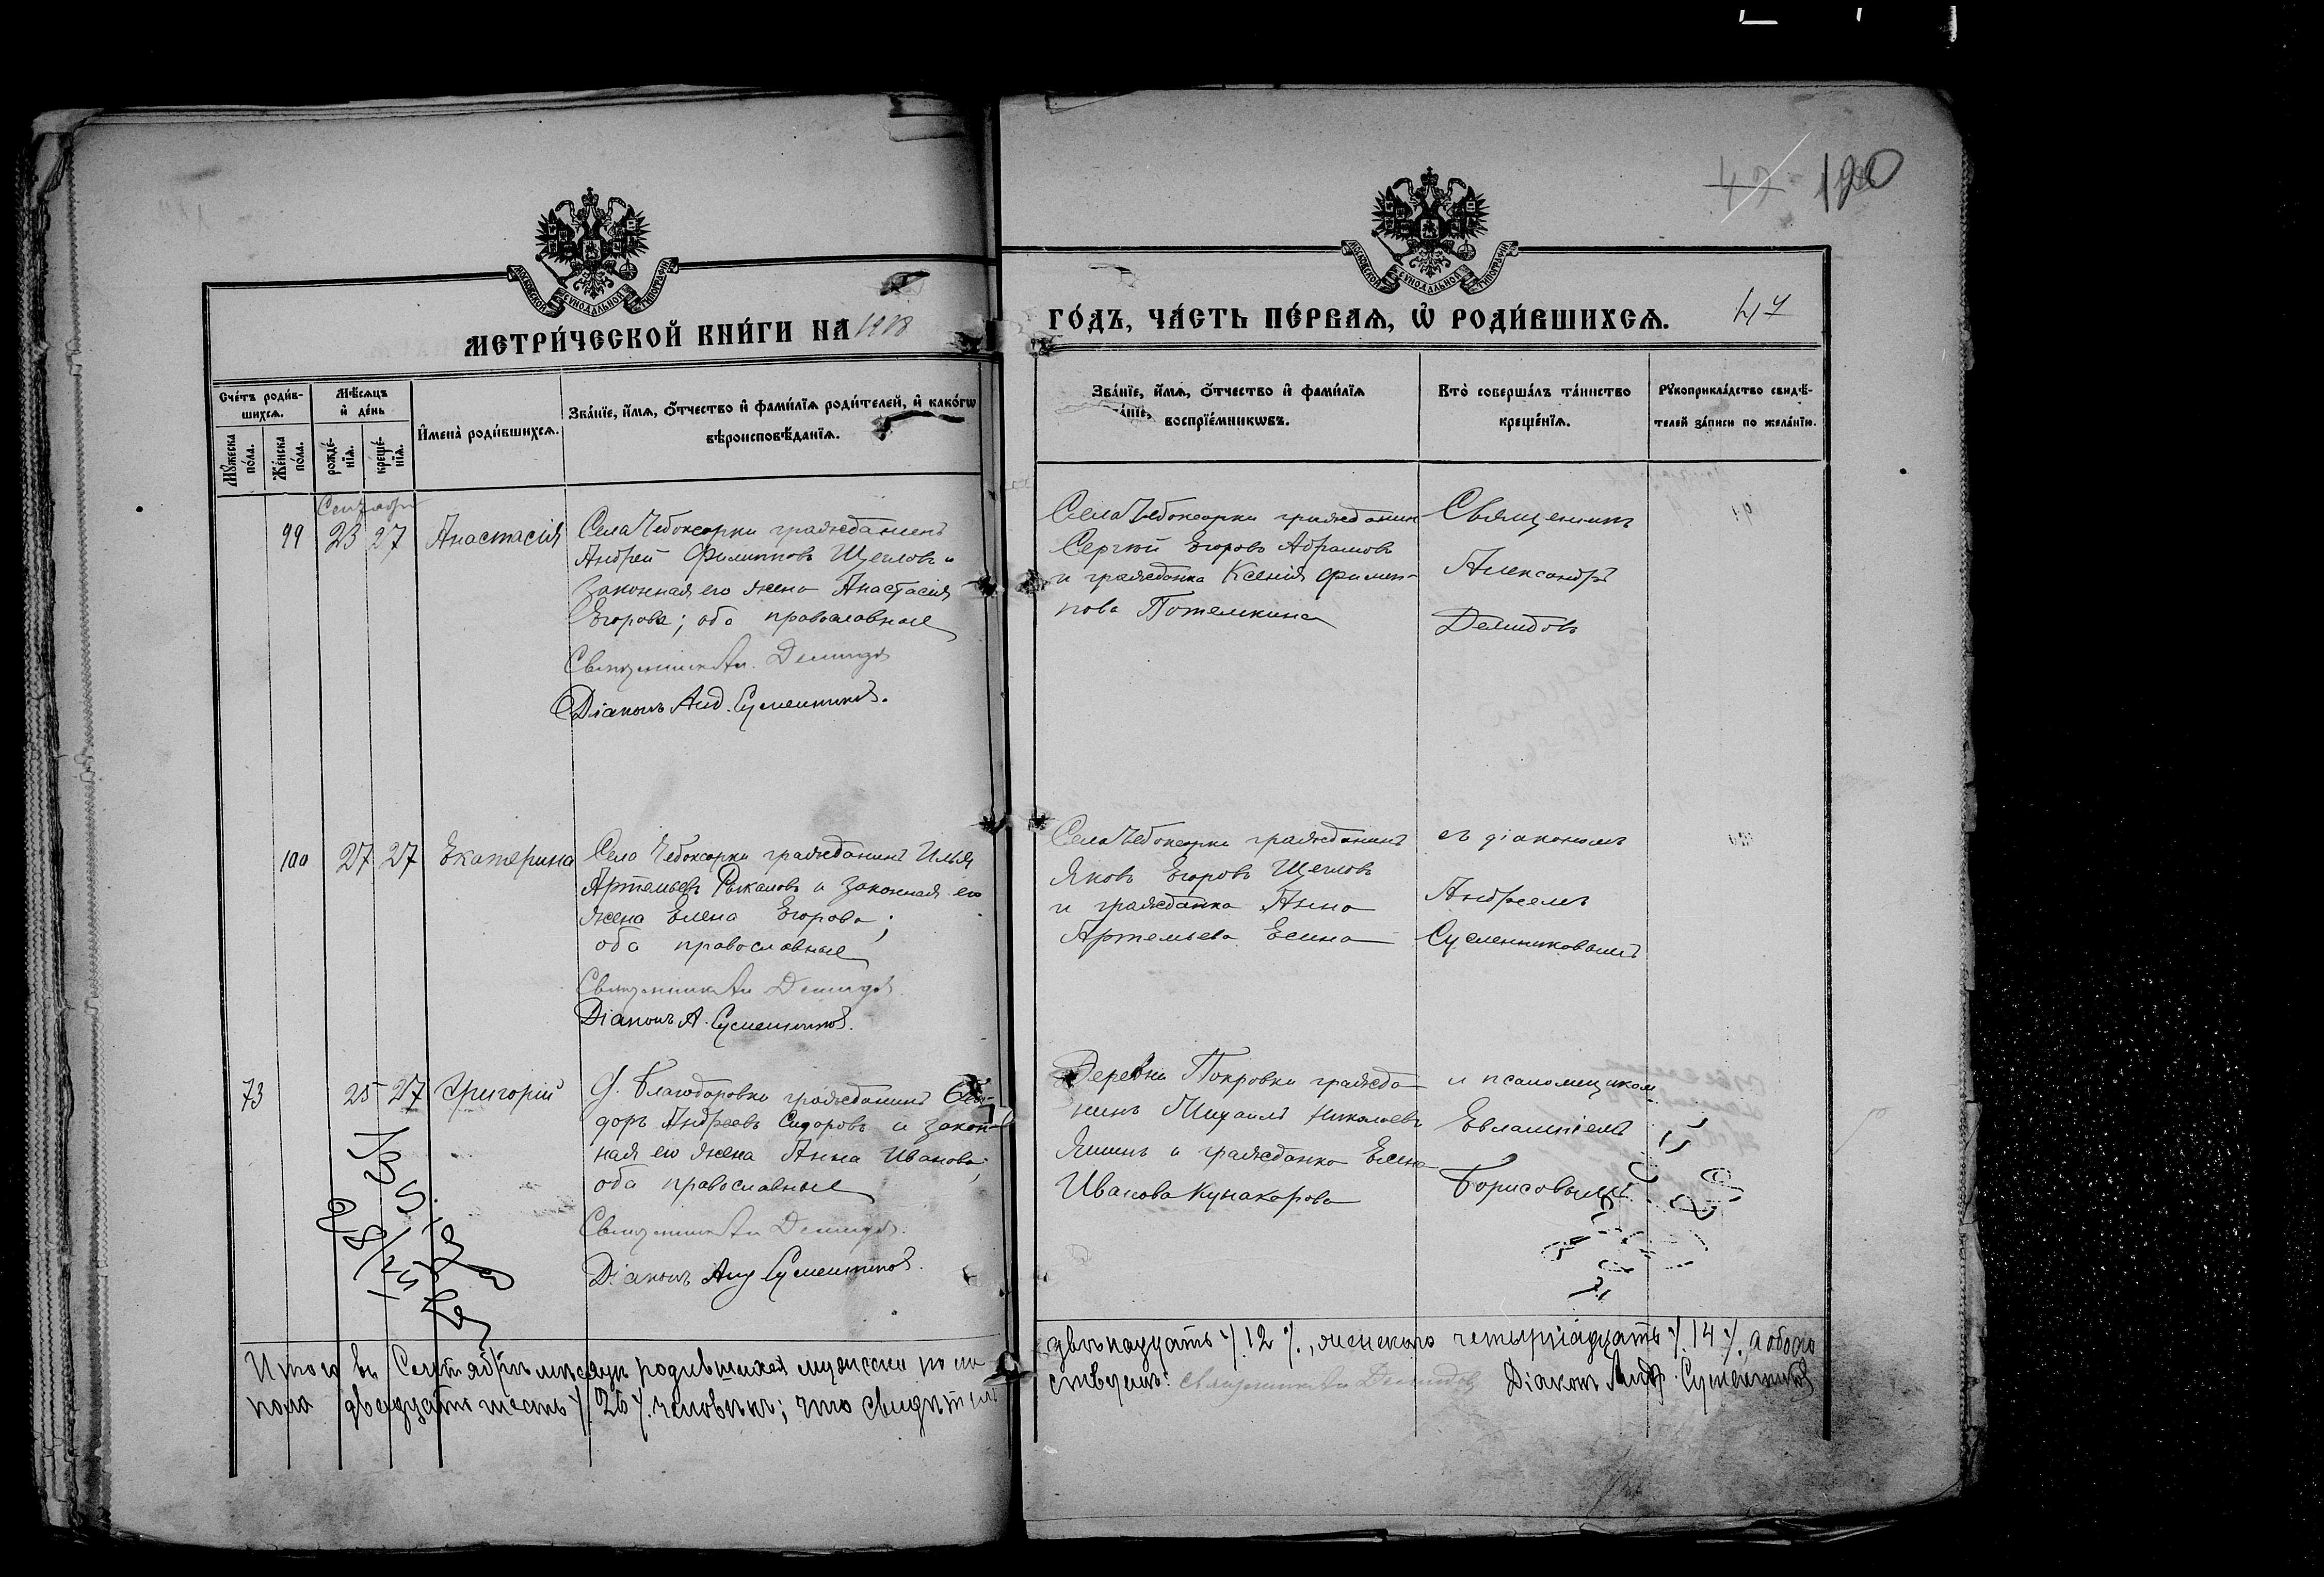 47 120
МОСКОВСКОЙ СѴНОДАЛЬНОЙ ТИПОГРАФІИ
МОСКОВСКОЙ СѴНОДАЛЬНОЙ ТИПОГРАФІИ
МЕТРИ́ЧЕСКОЙ КНИ́ГИ НА 1918
ГО́ДЪ, ЧА́СТЬ ПЕ́РВАѦ, Ѡ҆ РОДИ́ВШИХСѦ. 47
Сче́тъ роди́в-
шихсѧ.
Мꙋ́жеска
по́ла.
Же́нска
по́ла.
Мѣ́сѧцъ
и҆ де́нь
рожде́-
нїѧ.
креще́-
нїѧ.
И҆мена̀ роди́вшихсѧ.
Зва́нїе, и҆́мѧ, о҆́тчество и҆ фами́лїѧ роди́телей, и҆ како́гѡ
вѣроисповѣ́данїѧ.
Зва́нїе, и҆́мѧ, о҆́тчество и҆ фами́лїѧ
воспрїе́мникѡвъ.
Кто̀ соверша́лъ та́инство
креще́нїѧ.
Рꙋкоприкла́дство свидѣ́-
телей за́писи по жела́нїю.
Сентябрь
99 23 27 Анастасія
Села Чебоксарки гражданинъ
Андрей Филипповъ Щегловъ и
законная его жена Анастасія
Егорова; оба православные
Священникъ Ал. Демидовъ
Діаконъ Анд. Сусленниковъ.
Села Чебоксарки гражданин
Сергѣй Егоровъ Абрамовъ
и гражданка Ксенія Филип-
пова Потемкина
Священникъ
Александръ
Демидовъ
100 27 27 Екатерина
Села Чебоксарки гражданинъ Илья
Артемьевъ Рыкаловъ и законная его
жена Елена Егорова;
оба православные
Священникъ Ал Демидовъ.
Діаконъ А. Сусленниковъ.
Села Чебоксарки гражданинъ
Яковъ Егоровъ Щегловъ
и гражданка Анна
Артемьева Есина
съ діакономъ
Андреемъ
Сусленниковымъ
73 25 27 Григорій
д. Благодаровки гражданинъ
доръ Андреевъ Сидоровъ и закон-
ная его жена Анна Иванова;
оба православные
Священникъ Ал Демидовъ.
Діаконъ Анд Сусленниковъ.
Деревни Покровки гражда-
нинъ Михаилъ Николаевъ
Яшинъ и гражданка Елена
Иванова Кунакарова
и псаломщиком
Евлампіемъ
Борисовымъ
Итого въ Сентябрѣ мѣсяцѣ родившихся мужеска пола
двѣнадцать ·/. 12 ·/., женскаго четырнадцать ·/. 14 ·/., а обоего
пола двадцать шесть ·/. 26 ·/. человѣкъ; что свидѣтель
ствуемъ: Священникъ Ал Демидовъ Діаконъ Андр. Сусленниковъ